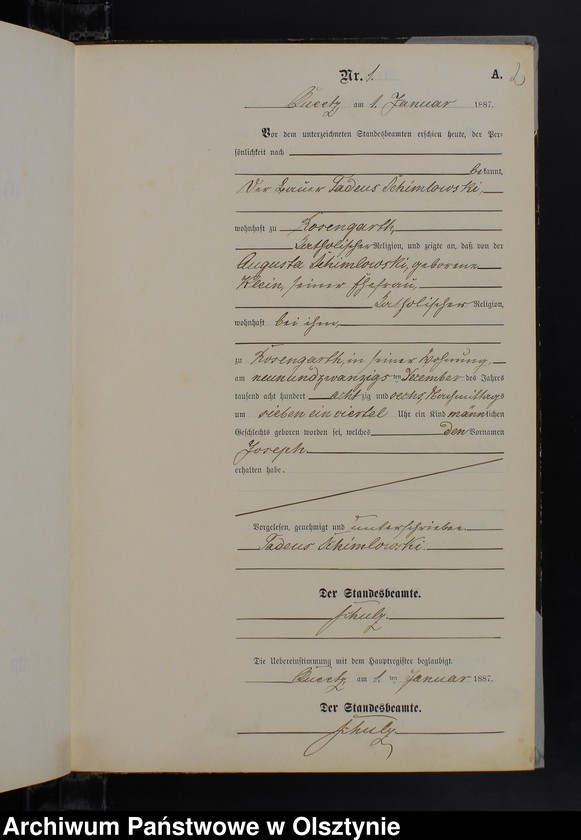 Nr. 1. A. 2
am 1. Januar 1887.
Vor dem unterzeichneten Standesbeamten erschien heute, der Per-
sönlichkeit nach
bekannt,
Der Bauer Tadeus Schimlowski,
wohnhaft zu Rosengarth,
katholischer Religion, und zeigte an, daß von der
Augusta Schimlowski, geborene
Klein, seiner Ehefrau,
katholischer Religion,
wohnhaft bei ihm,
zu Rosengarth, in seiner Wohnung
am neunundzwanzigsten Dezember des Jahres
tausend acht hundert achtzig und sechs, Nachmittags
um sieben ein viertel Uhr ein Kind männlichen
Geschlechts geboren worden sei, welches den Vornamen
Joseph
erhalten habe.
Vorgelesen, genehmigt und unterschrieben
Tadeus Schimlowski.
Der Standesbeamte.
Schulz
Die Uebereinstimmung mit dem Hauptregister beglaubigt.
am 1. ten Januar 1887.
Der Standesbeamte.
Schulz
Archiwum Państwowe w Olsztynie